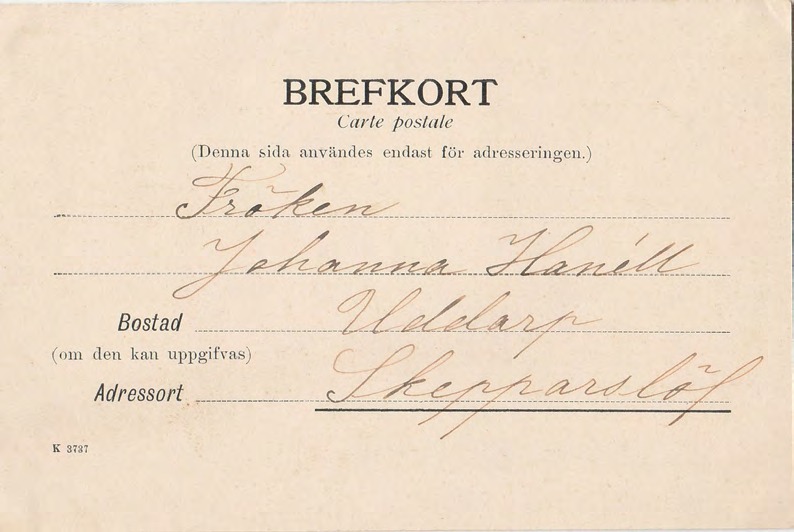 BREFKORT
Carte postale
(Denna sida användes endast för adresseringen.)
Fröken
Johanna Hanéll
Bostad Uddarp
(om den kan uppgifvas)
Adressort Skepparslöf
K 3737